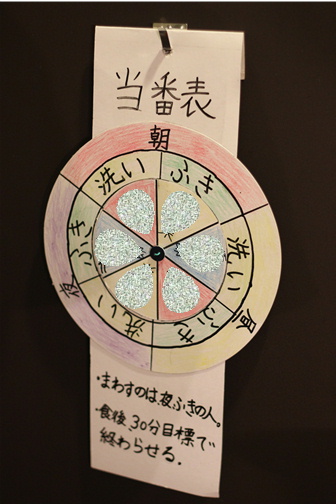 当番表
朝
洗い
ふき
昼
洗い
ふき
夜
洗い
ふき
・まわすのは夜ふきの人。
・食後、30分目標で
終わらせる。